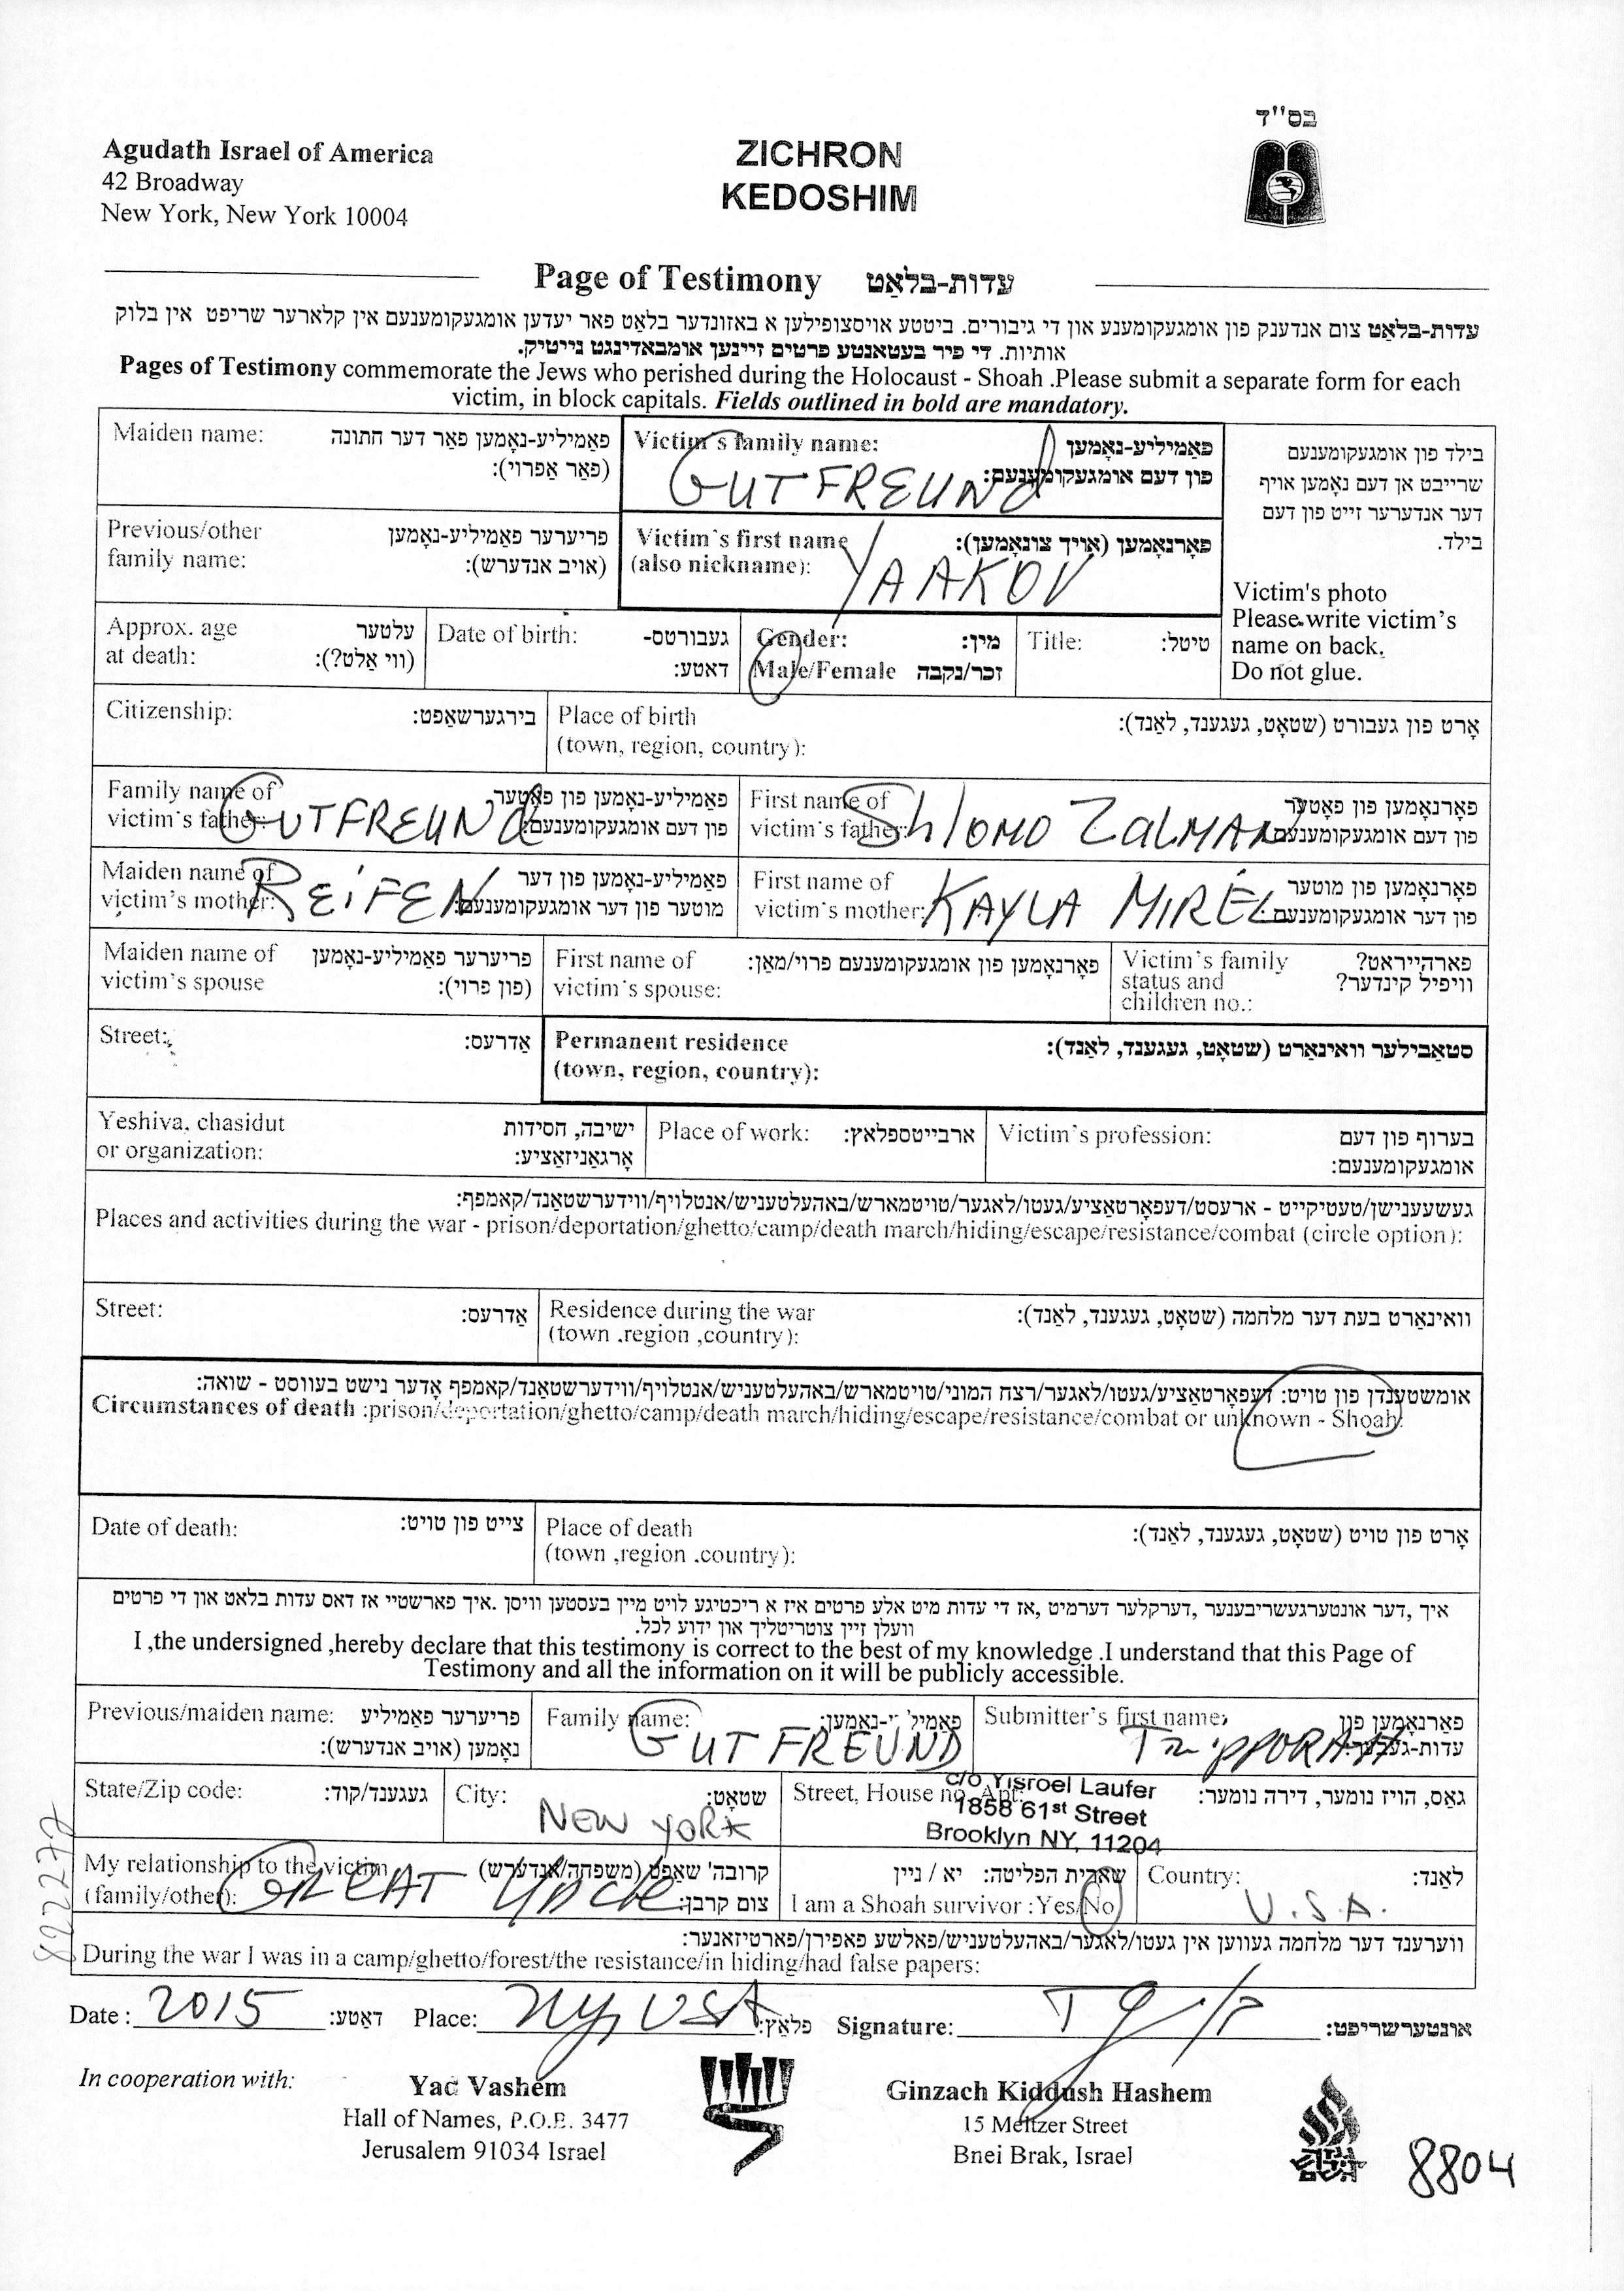 בס"ד
Agudath Israel of America
42 Broadway
New York, New York 10004
ZICHRON
KEDOSHIM
Page of Testimony עדות-בלאַט
עדות-בלאַט צום אנדענק פון אומגעקומענע און די גיבורים. ביטע אויסצופילען א באזונדער בלאט פאר יעדען אומגעקומענעם אין קלארער שריפט אין בלוק
אותיות. די פיר בעטאנטע פרטים זיינען אומבאדינגט נייטיק.
Pages of Testimony commemorate the Jews who perished during the Holocaust - Shoah .Please submit a separate form for each
victim, in block capitals. Fields outlined in bold are mandatory.
Maiden name: פאַמיליע-נאָמען פאר דער חתונה
(פאַר אַפרוי):
Victim's family name: פאַמיליע-נאָמען
פון דעם אומגעקומענעם:
GUTFREUNd
Previous/other פריערער פאַמיליע-נאָמען
family name: (אויב אנדערש):
Victim's first name פאָרנאָמען (אויך צונאָמען):
(also nickname):
YAAKOV
בילד פון אומגעקומענעם
שרייבט אן דעם נאָמען אויף
דער אנדערער זייט פון דעם
בילד.
Victim's photo
Please write victim's
name on back.
Do not glue.
Approx. age עלטער
at death: (ווי אַלט?):
Date of birth: געבורטס-
דאַטע:
Gender: מין:
Male/Female זכר/נקבה
Title: טיטל:
Citizenship: בירגערשאַפט:
Place of birth אָרט פון געבורט (שטאָט, געגענד, לאַנד):
(town, region, country):
Family name of פאַמיליע-נאָמען פון פאָטער
victim's father: פון דעם אומגעקומענעם:
GUTFREUNd
First name of פאָרנאָמען פון פאָטער
victim's father: פון דעם אומגעקומענעם:
ShlOMO ZalMAN
Maiden name of פאַמיליע-נאָמען פון דער
victim's mother: מוטער פון דער אומגעקומענעם:
REiFEN
First name of פאָרנאָמען פון מוטער
victim's mother: פון דער אומגעקומענעם:
KAYLA MIREL
Maiden name of פריערער פאַמיליע-נאָמען
victim's spouse (פון פרוי):
First name of פאָרנאָמען פון אומגעקומענעם פרוי/מאַן:
victim's spouse:
Victim's family פארהייראט?
status and וויפיל קינדער?
children no.:
Street: אַדרעס:
Permanent residence סטאַבילער וואינאַרט (שטאָט, געגענד, לאַנד):
(town, region, country):
Yeshiva, chasidut ישיבה, חסידות
or organization: אָרגאַניזאַציע:
Place of work: ארבייטספלאַץ:
Victim's profession: בערוף פון דעם
אומגעקומענעם:
געשעענישן/טעטיקייט - ארעסט/דעפאָרטאַציע/געטו/לאַגער/טויטמארש/באהעלטעניש/אנטלויף/ווידערשטאַנד/קאמפף:
Places and activities during the war - prison/deportation/ghetto/camp/death march/hiding/escape/resistance/combat (circle option):
Street: אַדרעס:
Residence during the war וואינאַרט בעת דער מלחמה (שטאָט, געגענד, לאַנד):
(town .region ,country):
אומשטענדן פון טויט: דעפאָרטאַציע/געטו/לאַגער/רצח המוני/טויטמארש/באהעלטעניש/אנטלויף/ווידערשטאַנד/קאמפף אָדער נישט בעווסט - שואה:
Circumstances of death :prison/deportation/ghetto/camp/death march/hiding/escape/resistance/combat or unknown - Shoah:
Date of death: צייט פון טויט:
Place of death אָרט פון טויט (שטאָט, געגענד, לאַנד):
(town ,region .country):
איך ,דער אונטערגעשריבענער ,דערקלער דערמיט ,אז די עדות מיט אלע פרטים איז א ריכטיגע לויט מיין בעסטען וויסן .איך פארשטיי אז דאס עדות בלאט און די פרטים
וועלן זיין צוטריטליך און ידוע לכל.
I ,the undersigned ,hereby declare that this testimony is correct to the best of my knowledge .I understand that this Page of
Testimony and all the information on it will be publicly accessible.
Previous/maiden name: פריערער פאַמיליע
נאָמען (אויב אנדערש):
Family name: פאַמיל י-נאָמען:
GUTFREUND
Submitter's first name: פאָרנאָמען פון
עדות-געבער:
TzippORAH
State/Zip code: געגענד/קוד:
City: שטאָט:
NEW YORK
Street, House no. Apt: גאַס, הויז נומער, דירה נומער:
c/o Yisroel Laufer
1858 61st Street
Brooklyn NY, 11204
My relationship to the victim קרובה' שאַפט (משפחה/אנדערש)
(family/other): צום קרבן:
GREAT Uncle
שארית הפליטה: יא / ניין
I am a Shoah survivor :Yes/No
Country: לאַנד:
U.S.A.
ווערענד דער מלחמה געווען אין געטו/לאַגער/באהעלטעניש/פאלשע פאפירן/פארטיזאנער:
During the war I was in a camp/ghetto/forest/the resistance/in hiding/had false papers:
Date : 2015 דאַטע: Place: Ny, USA פלאַץ: Signature: אונטערשריפט:
In cooperation with:
Yad Vashem
Hall of Names, P.O.B. 3477
Jerusalem 91034 Israel
Ginzach Kiddush Hashem
15 Meltzer Street
Bnei Brak, Israel
8804